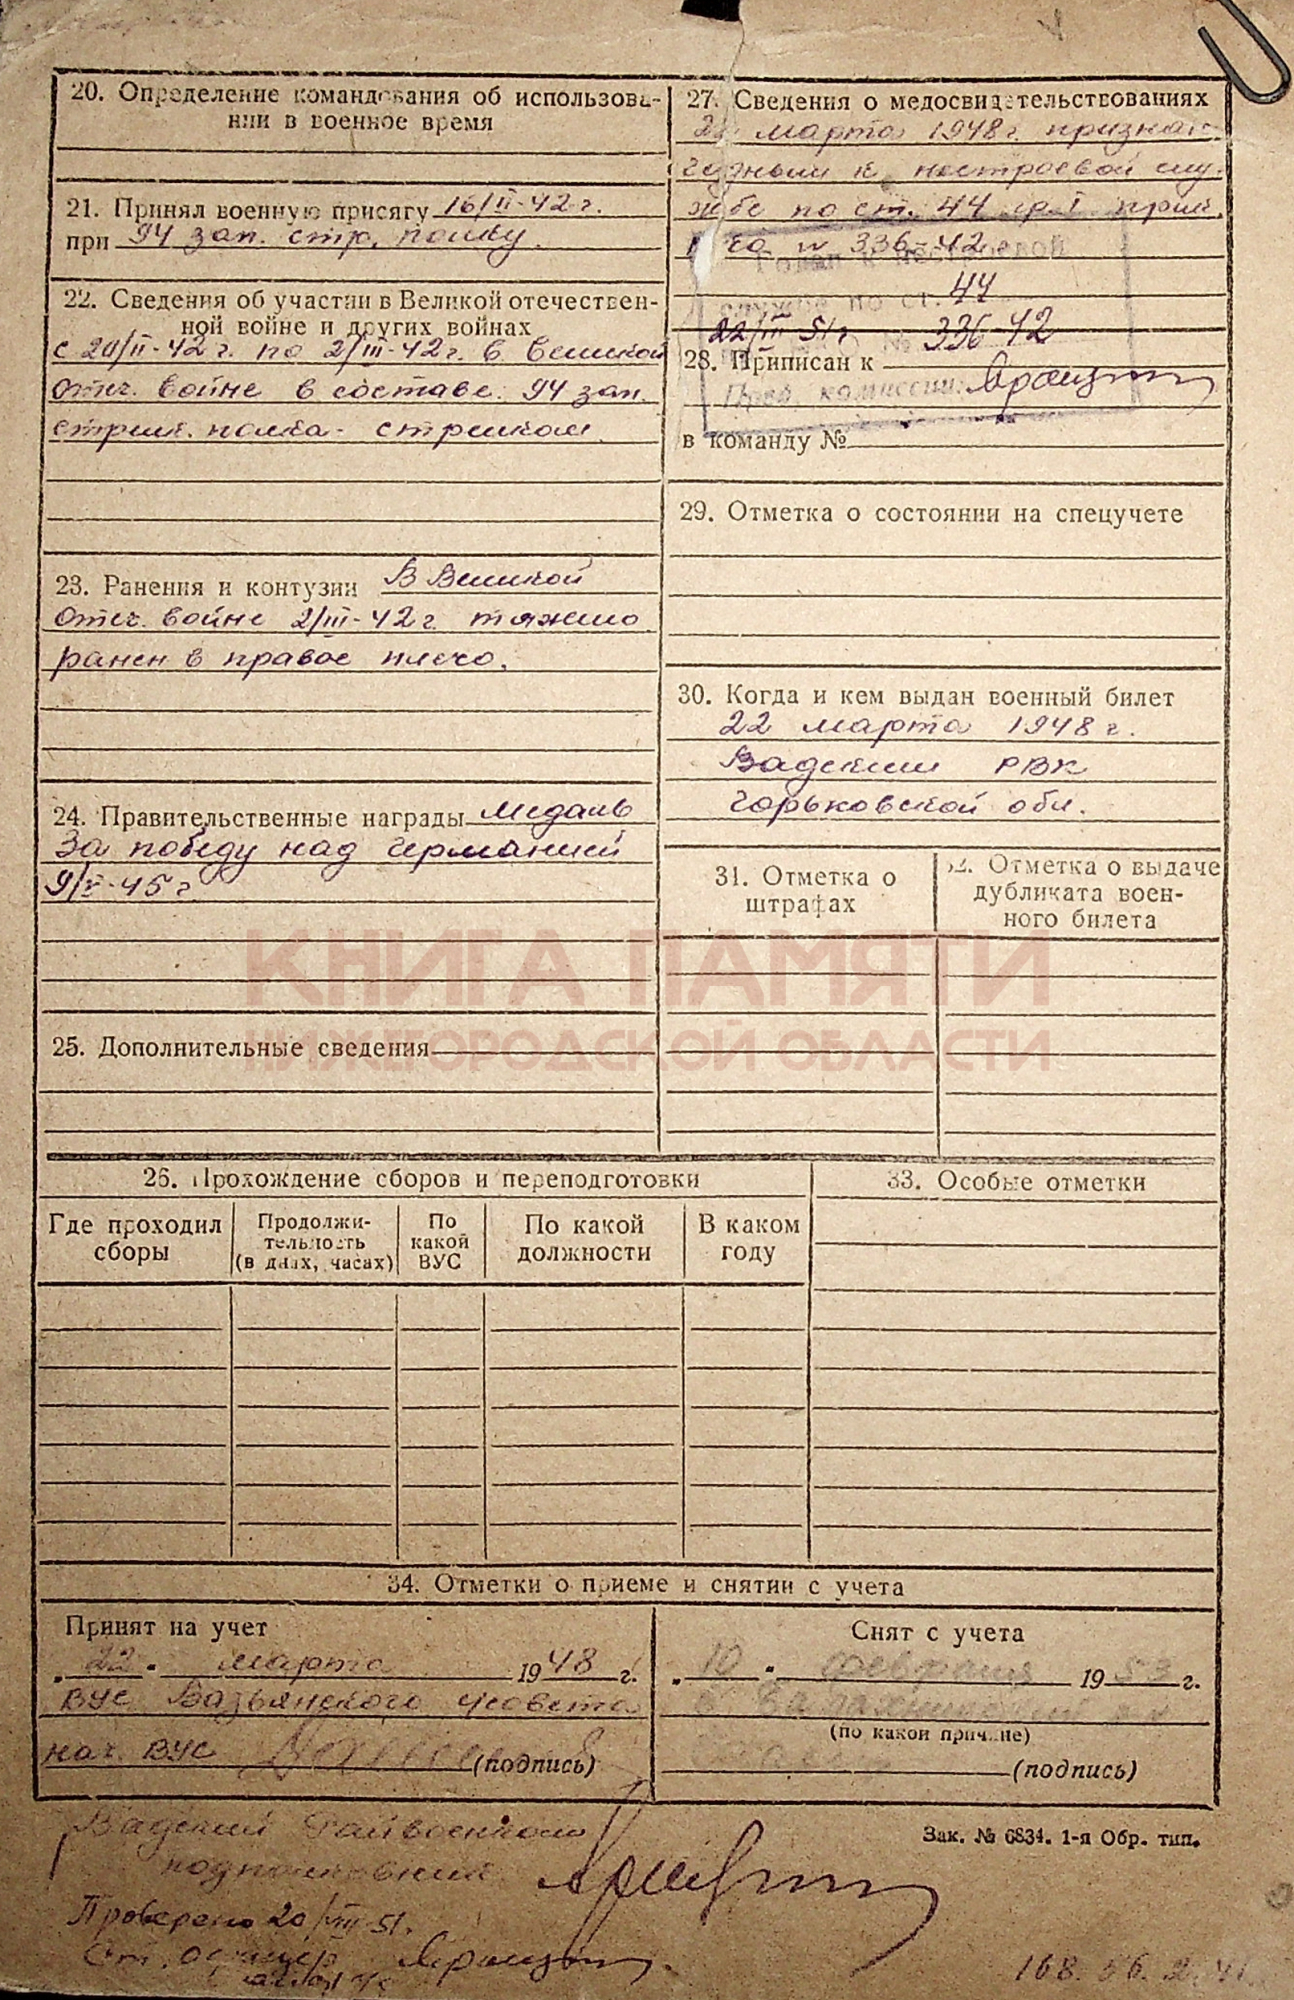 20. Определение командования об использова-
нии в военное время
21. Принял военную присягу 16/II-42 г.
при 94 зап. стр. полку.
22. Сведения об участии в Великой отечествен-
ной войне и других войнах
с 20/II-42 г. по 2/III-42 г. в Великой
отеч. войне в составе 94 зап.
стрелк. полка - стрелком.
23. Ранения и контузии В Великой
отеч. войне 2/III-42 г. тяжело
ранен в правое плечо.
24. Правительственные награды Медаль
За победу над Германией
9/V-45 г.
25. Дополнительные сведения
27. Сведения о медосвидетельствованиях
22 марта 1948 г. признан
годным к нестроевой слу-
жбе по ст. 44 гр. I прик.
№ 336-42
Годен к нестроевой
службе по ст. 44
22/III 51 г 336-42
28. Приписан к
Пред. комиссии:
в команду №
29. Отметка о состоянии на спецучете
30. Когда и кем выдан военный билет
22 марта 1948 г.
Вадским РВК
Горьковской обл.
31. Отметка о
штрафах
32. Отметка о выдаче
дубликата воен-
ного билета
КНИГА ПАМЯТИ
НИЖЕГОРОДСКОЙ ОБЛАСТИ
26. Прохождение сборов и переподготовки
Где проходил
сборы
Продолжи-
тельность
(в днях, часах)
По
какой
ВУС
По какой
должности
В каком
году
33. Особые отметки
34. Отметки о приеме и снятии с учета
Принят на учет
„22" марта 1948 г.
ВУС
нач. ВУС (подпись)
Снят с учета
„10" февраля 1953 г.
(по какой причине)
(подпись)
Вадский Райвоенком
подполковник
Проверено 20/VIII 51.
Ст. офицер
Зак. № 6834. 1-я Обр. тип.